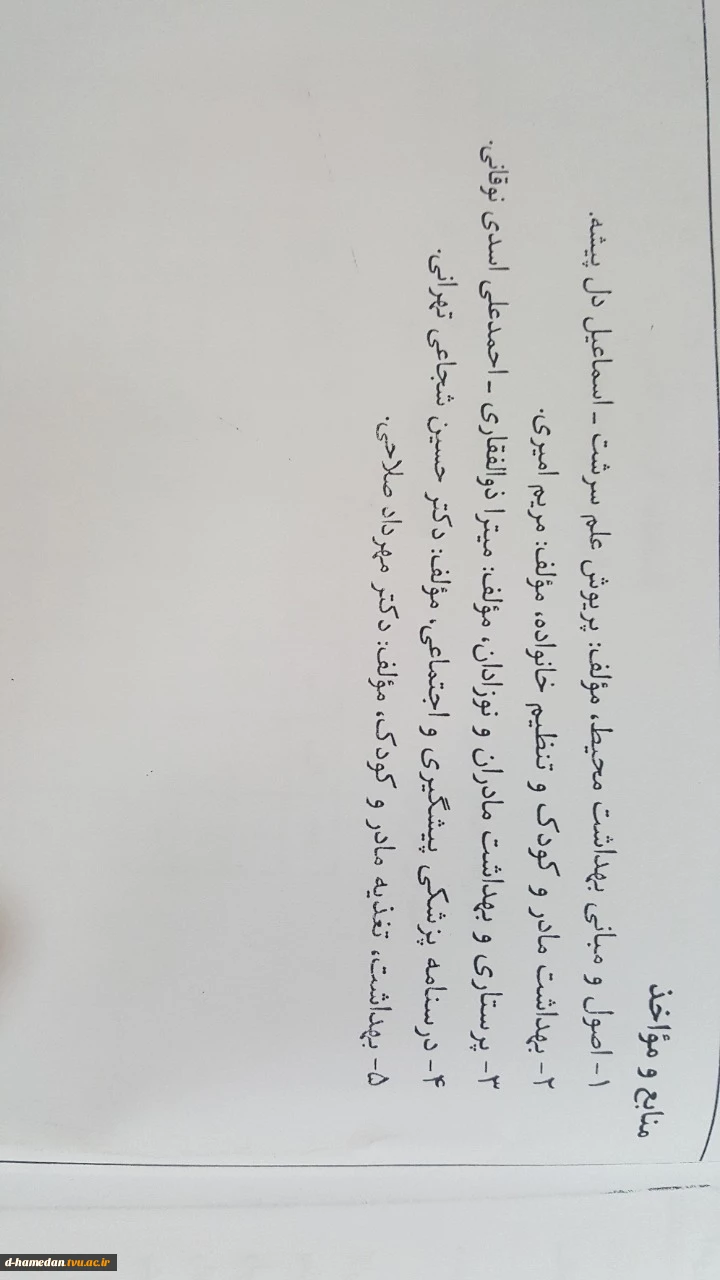 منابع و مؤاخذ
۱- اصول و مبانی بهداشت محیط، مؤلف: پریوش علم سرشت ـ اسماعیل دل پیشه.
۲- بهداشت مادر و کودک و تنظیم خانواده، مؤلف: مریم امیری.
۳- پرستاری و بهداشت مادران و نوزادان، مؤلف: میترا ذوالفقاری ـ احمدعلی اسدی نوقانی.
۴- درسنامه پزشکی پیشگیری و اجتماعی، مؤلف: دکتر حسین شجاعی تهرانی.
۵- بهداشت، تغذیه مادر و کودک، مؤلف: دکتر مهرداد صلاحی.
d-hamedan.tvu.ac.ir